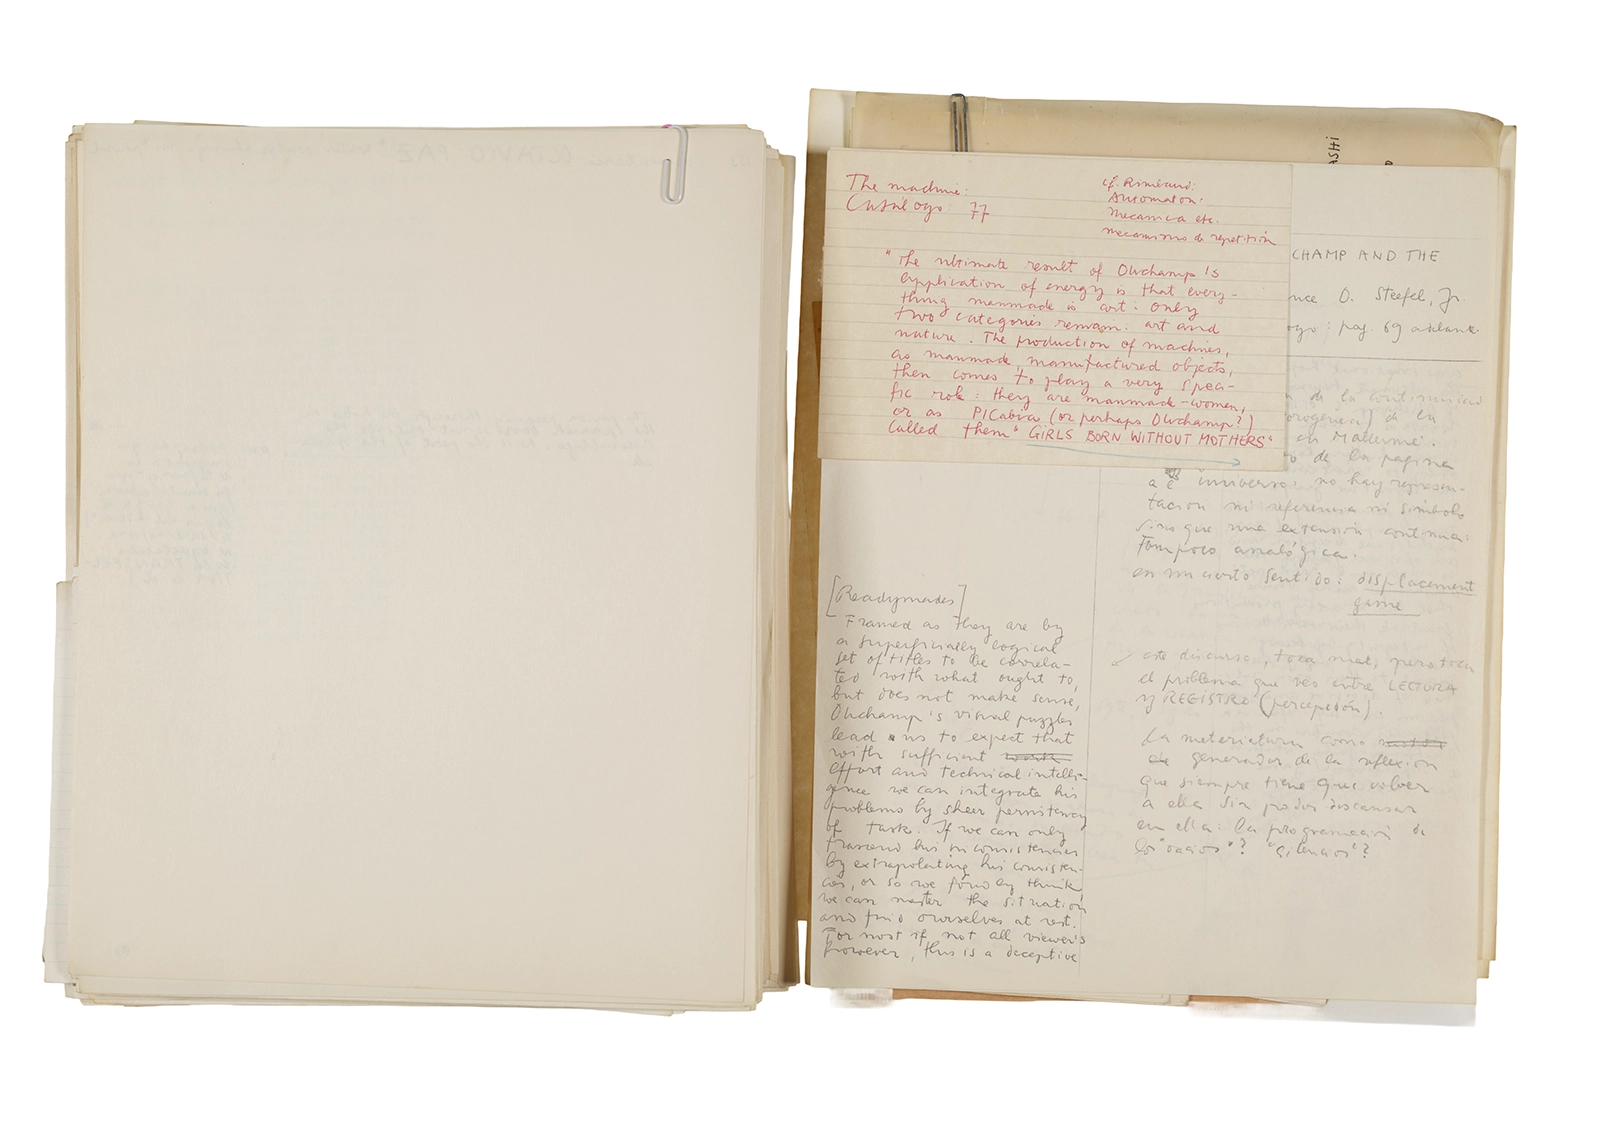 The machine:
Catálogo 77
cf. Rimbaud:
Automaton:
mecanica etc.
mecanismo de repetición
"The ultimate result of Duchamp's
application of energy is that every-
thing manmade is art: only
two categories remain: art and
nature. The production of machines,
as manmade, manufactured objects,
then comes to play a very speci-
fic role: they are manmade-women,
or as PICabia (or perhaps Duchamp?)
called them "GIRLS BORN WITHOUT MOTHERS"
ASHI
CHAMP AND THE
nce D. Steefel, Jr.
ogo: pag. 69 adelante
de la continuidad
de la
en Mallarmé.
de la pagina
universo: no hay represen-
tacion ni referencia ni simbolo
sino que una extensión continua:
Tampoco analógica.
en un cierto sentido: displacement
game
este discurso, toca mal, pero toca
el problema que veo entre LECTURA
y REGISTRO (percepción).
La materiatura como
de generador de la reflexion
que siempre tiene que volver
a ella sin poder descansar
en ella: la programación de
los "vacios"? "silencios"?
[Readymades]
Framed as they are by
a superficially logical
set of titles to be correla-
ted with what ought to,
but does not make sense,
Duchamp's visual puzzles
lead us to expect that
with sufficient
effort and technical intelli-
gence we can integrate his
problems by sheer persistency
of task. If we can only
trascend his inconsistencies
by extrapolating his consisten-
cies, or so we fondly think
we can master the situation
and find ourselves at rest.
For most if not all viewers
however, this is a deceptive